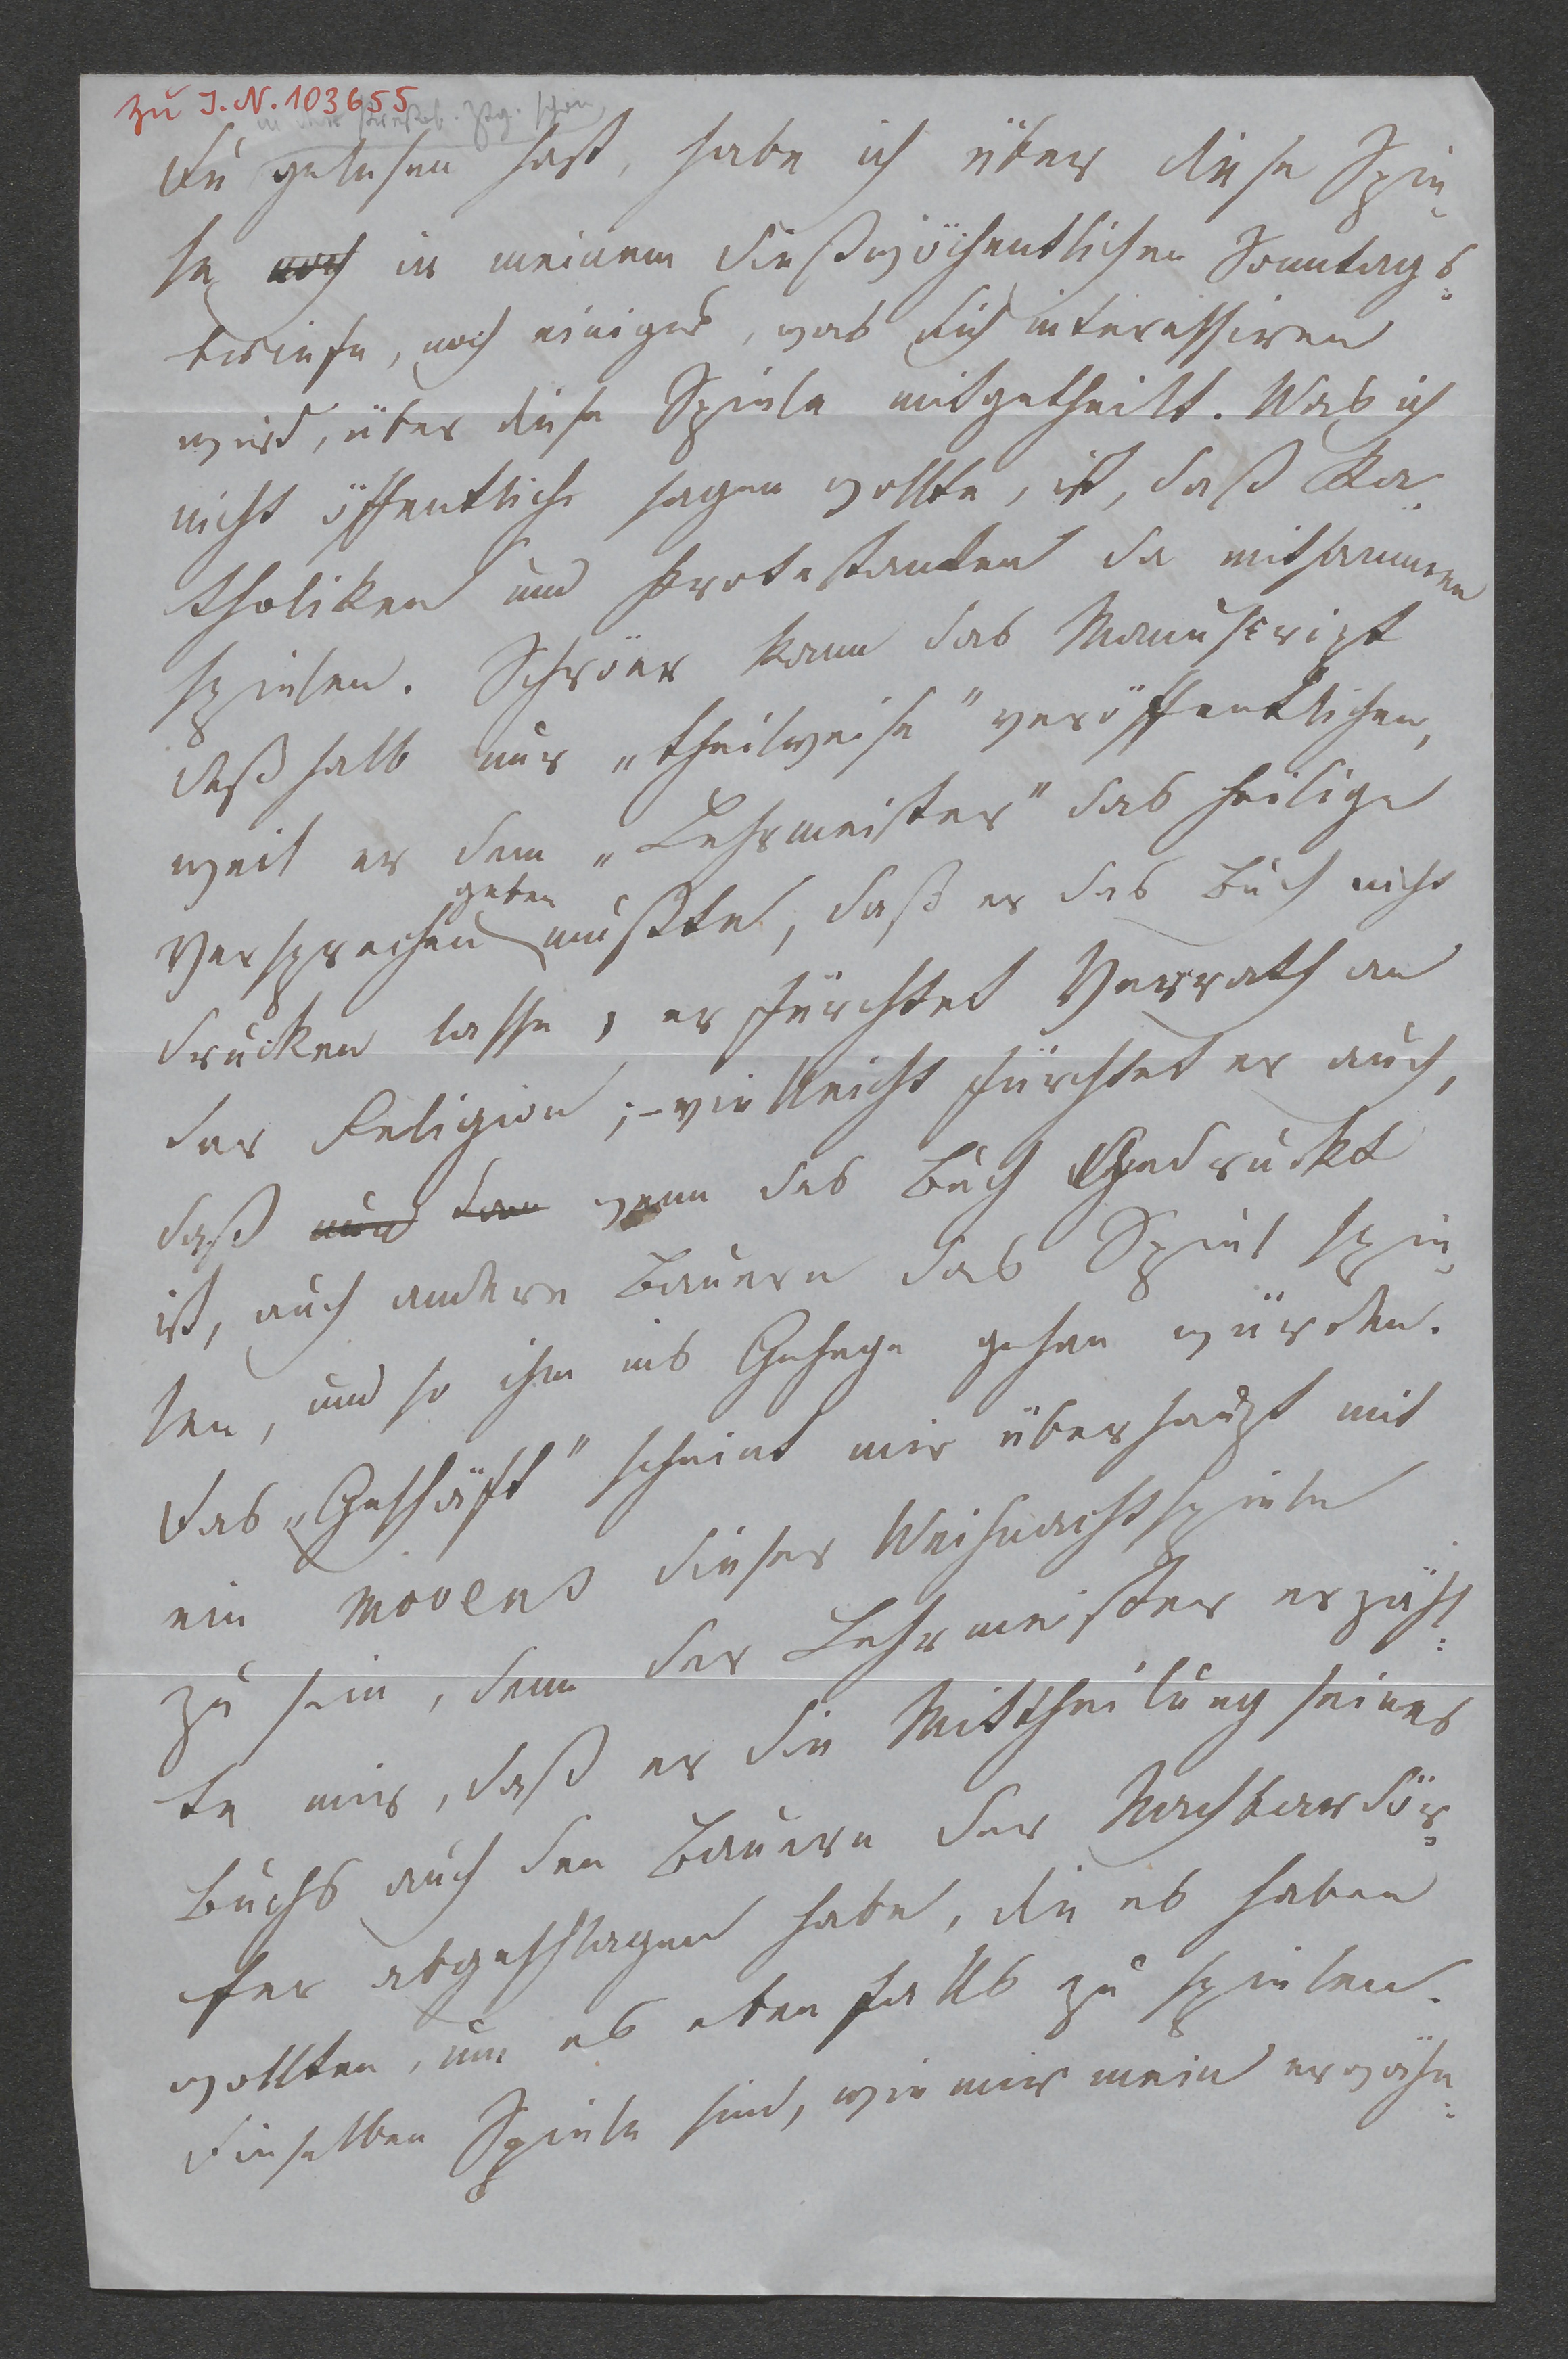 zu I.N. 103655
in der Pressb. Ztg. schon
Du gelesen hast, habe ich über diese Spie-
le noch in meinem dießwöchentlichen Sonntags-
briefe, noch einiges, was dich interessiren
wird, über diese Spiele mitgetheilt. Was ich
nicht öffentlich sagen wollte, ist, daß Ka-
tholiken und Protestanten da mitsammen
spielen. Schröer kann das Manuscript
deßhalb nur „theilweise" veröffentlichen,
weil er dem „Lehrmeister" das heilige
geben
Versprechen mußte, daß er das Buch nicht
drucken lasse, er fürchtet Verrath an
der Religion; – vielleicht fürchtet er auch,
daß nun dan wenn das Buch Gedruckt
ist, auch andere Bauern das Spiel spie-
len, und so ihm ins Gehege gehen würden.
Das „Geschäft" scheint mir überhaupt mit
ein movens dieser Weihnachtspiele
zu sein, denn der Lehrmeister erzähl-
te mir, daß er die Mittheilung seines
Buchs auch den Bauern der Nachbardör-
fer abgeschlagen habe, die es haben
wollten, um es ebenfalls zu spielen.
Dieselben Spiele sind, wie mir mein erwähn-